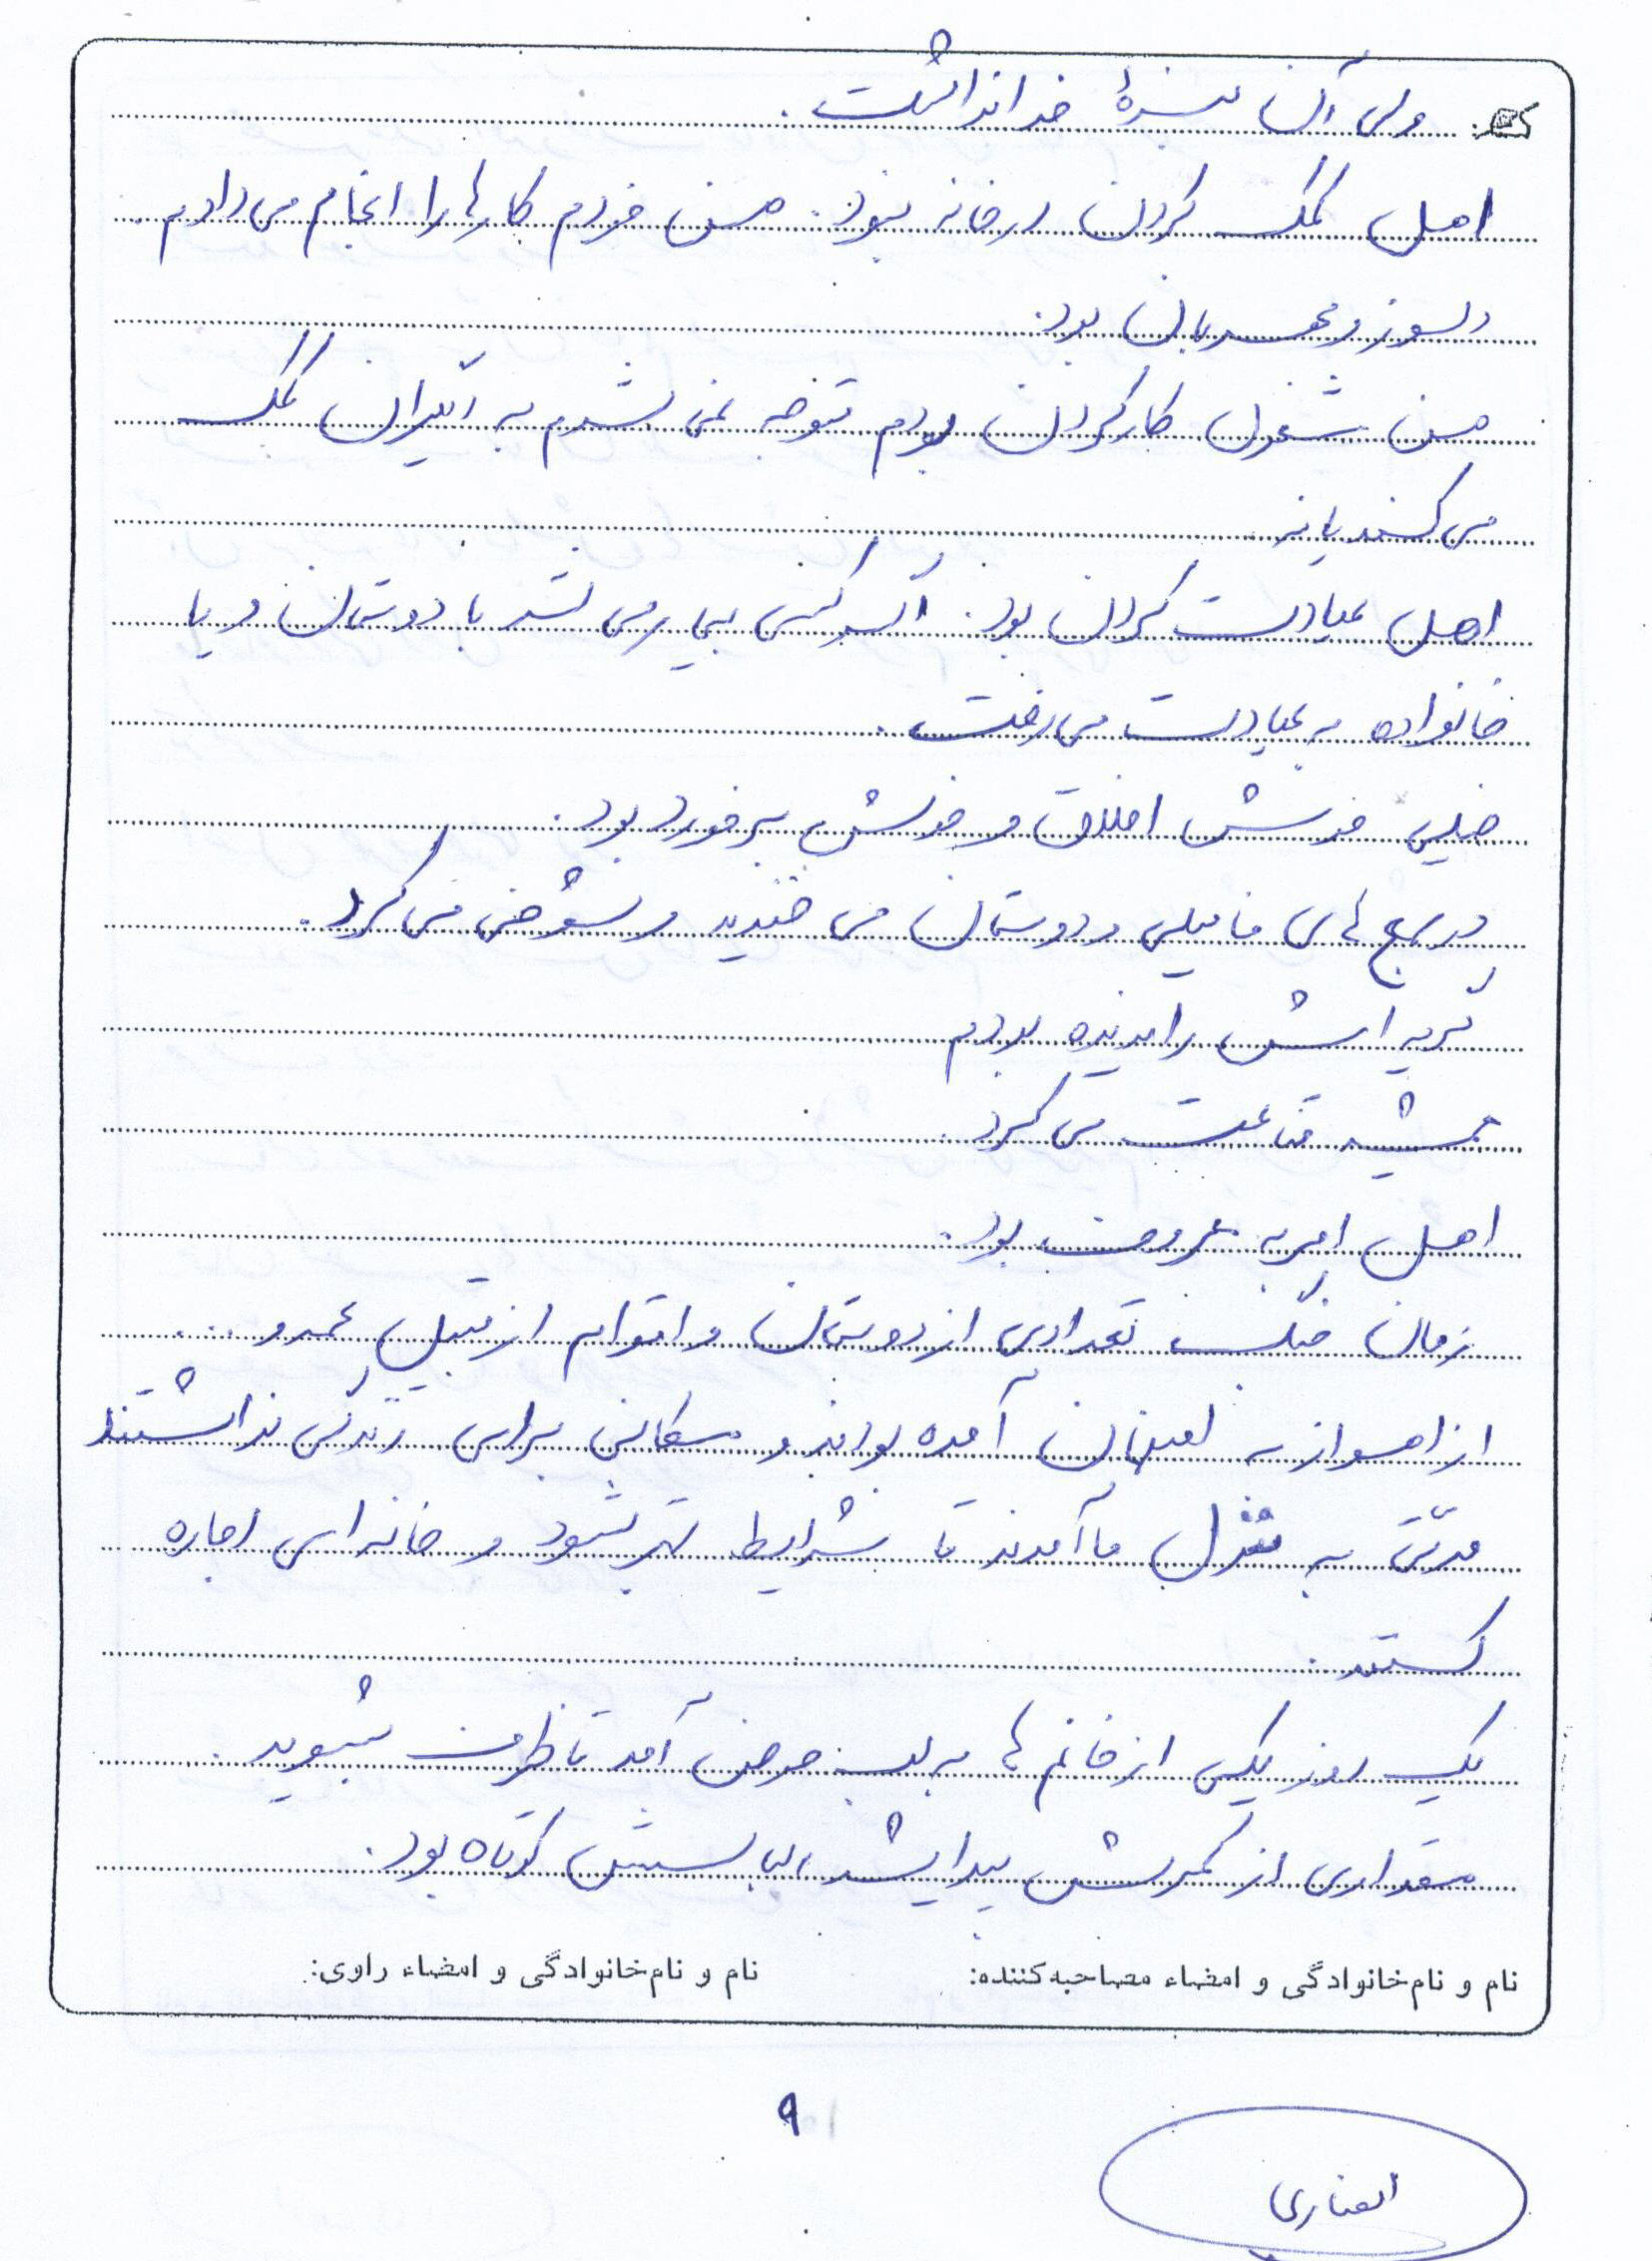 ولی آن بندهٔ خدا نداشت.
اهل کمک کردن در خانه نبود. من خودم کارها را انجام می‌دادم.
دلسوز و مهربان بود.
من مشغول کار کردن بودم متوجه نمی‌شدم به دیگران کمک
می‌کنند یا نه
اهل عیادت کردن بود. اگر کسی بیمار می‌شد با دوستان و یا
خانواده به عیادت می‌رفت.
خیلی خوش اخلاق و خوش برخورد بود.
در جمع‌های فامیلی و دوستان می‌خندید و شوخی می‌کرد.
گریه‌اش را ندیده بودم
همیشه قناعت می‌کرد.
اهل امر به معروف بود.
زمان جنگ تعدادی از دوستان و اقوام از قبیل عمه و ...
از اهواز به اصفهان آمده بودند و مکانی برای زندگی نداشتند
مدتی به منزل ما آمدند تا شرایط بهتر شود و خانه‌ای اجاره
کنند.
یک روز یکی از خانم‌ها به لب حوض آمد تا ظرف بشوید.
مقداری از کمرش پیدا شد، لباسش کوتاه بود.
نام و نام‌خانوادگی و امضاء مصاحبه‌کننده: نام و نام‌خانوادگی و امضاء راوی:
۹